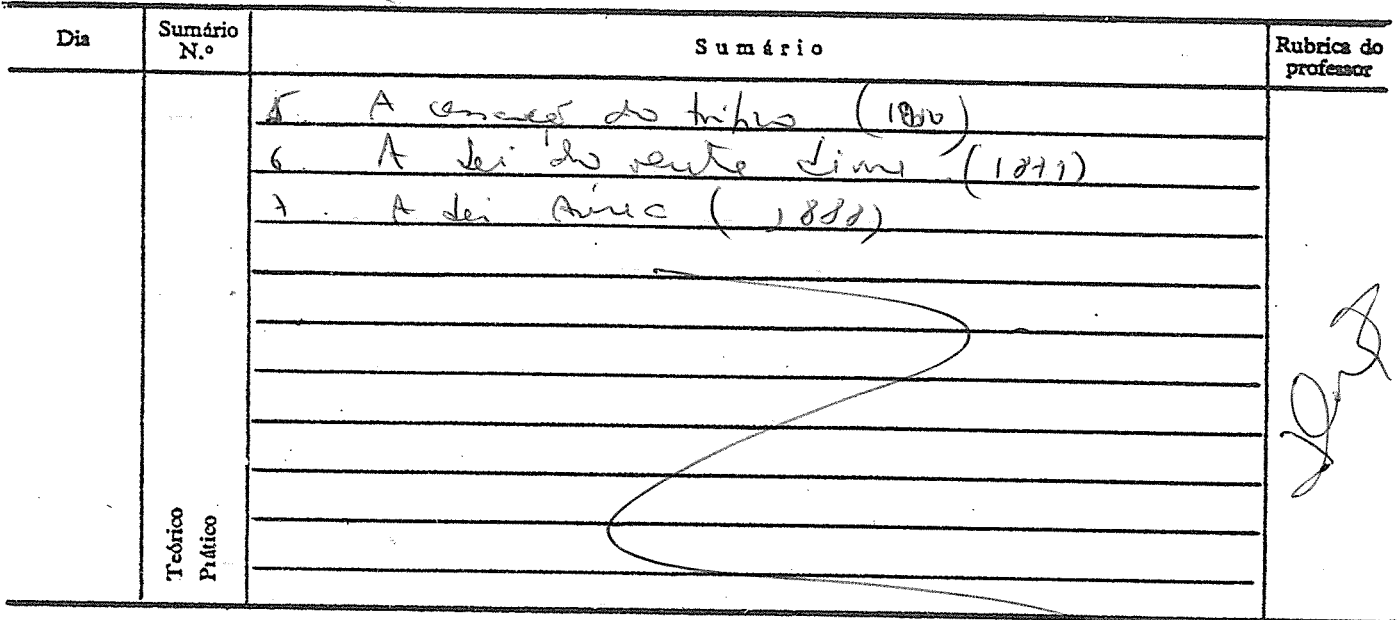 Dia
Sumário N.º
Sumário
Rubrica do professor
5. A cessação do tráfico (1850)
6. A Lei do ventre Livre (1871)
7. A Lei Áurea (1888)
Teórico
Prático